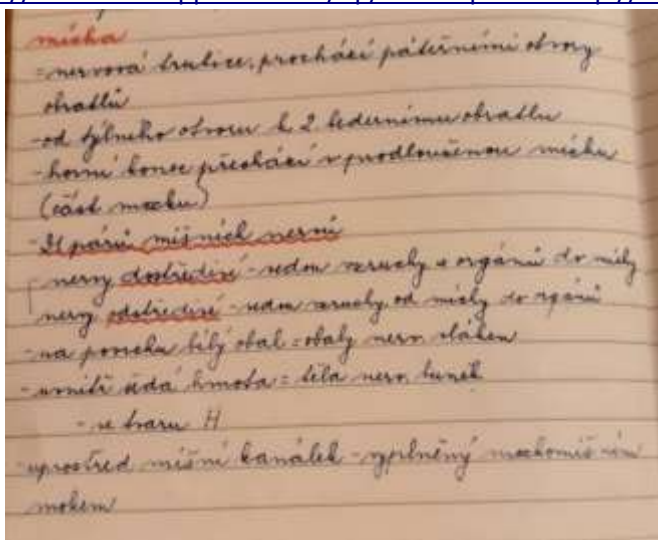 mícha
= nervová trubice, prochází páteřními otvory
obratlů
- od týlního otvoru k 2. bedernímu obratlu
- horní konec přechází v prodlouženou míchu
(část mozku)
- 31 párů míšních nervů
nervy dostředivé - vedou vzruchy z orgánů do míchy
nervy odstředivé - vedou vzruchy od míchy do orgánů
- na povrchu bílý obal = obaly nerv. vláken
- uvnitř šedá hmota = těla nerv. buněk
- ve tvaru H
- uprostřed míšní kanálek - vyplněný mozkomíšním
mokem